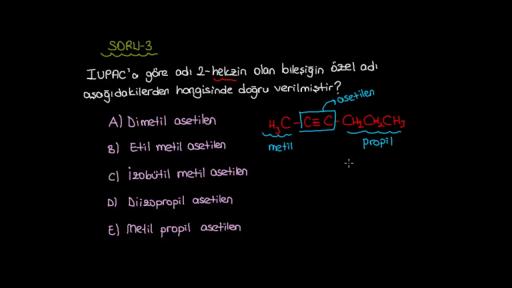 SORU-3
IUPAC'a göre adı 2-hekzin olan bileşiğin özel adı
aşağıdakilerden hangisinde doğru verilmiştir?
asetilen
A) Dimetil asetilen
H₃C-C≡C-CH₂CH₂CH₃
metil
propil
B) Etil metil asetilen
C) İzobütil metil asetilen
D) Diizopropil asetilen
E) Metil propil asetilen